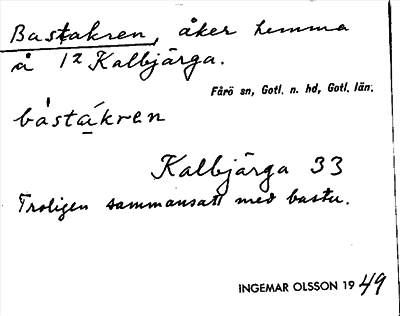 Bastakren, åker hemma
å 12 Kalbjärga.
Fårö sn, Gotl. n. hd, Gotl. län.
båstákren
Kalbjärga 33
Troligen sammansatt med bastu.
INGEMAR OLSSON 1949